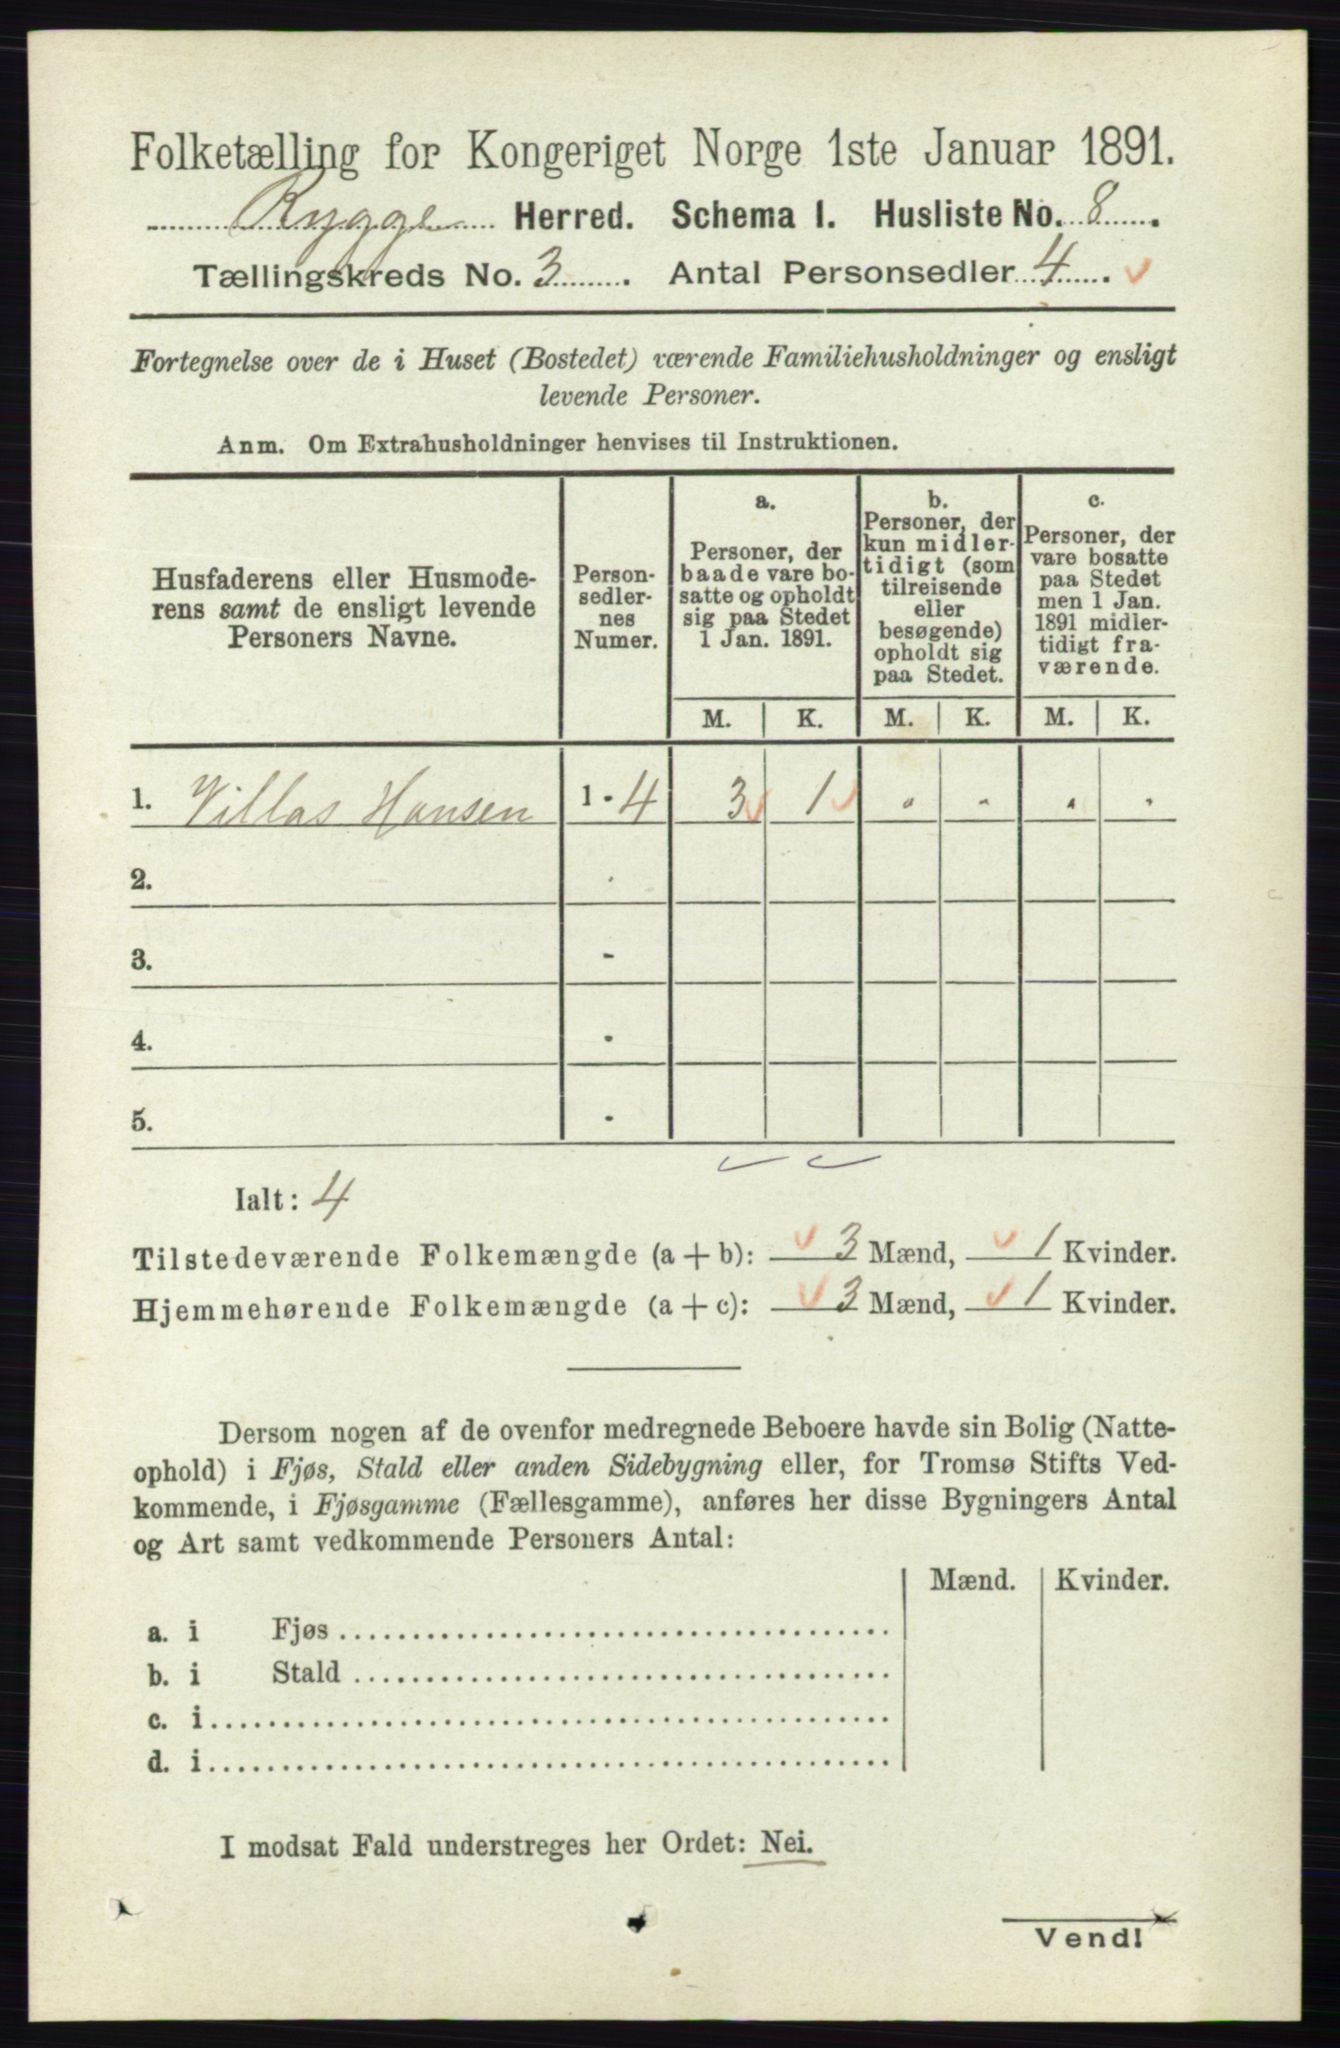 Folketælling for Kongeriget Norge 1ste Januar 1891.
Rygge Herred. Schema 1. Husliste No. 8.
Tællingskreds No. 3. Antal Personsedler 4.
Fortegnelse over de i Huset (Bostedet) værende Familiehusholdninger og ensligt
levende Personer.
Anm. Om Extrahusholdninger henvises til Instruktionen.
Husfaderens eller Husmode-
rens samt de ensligt levende
Personers Navne.
Person-
sedler-
nes
Numer.
a.
Personer, der
baade vare bo-
satte og opholdt
sig paa Stedet
1 Jan. 1891.
b.
Personer, der
kun midler-
tidigt (som
tilreisende
eller
besøgende)
opholdt sig
paa Stedet.
c.
Personer, der
vare bosatte
paa Stedet
men 1 Jan.
1891 midler-
tidigt fra-
værende.
M. K. M. K. M. K.
1. Villas Hansen 1 - 4 3 1 " " " "
2. -
3. -
4. -
5. -
Ialt: 4
Tilstedeværende Folkemængde (a + b): 3 Mænd, 1 Kvinder.
Hjemmehørende Folkemængde (a + c): 3 Mænd, 1 Kvinder.
Dersom nogen af de ovenfor medregnede Beboere havde sin Bolig (Natte-
ophold) i Fjøs, Stald eller anden Sidebygning eller, for Tromsø Stifts Ved-
kommende, i Fjøsgamme (Fællesgamme), anføres her disse Bygningers Antal
og Art samt vedkommende Personers Antal:
Mænd. Kvinder.
a. i Fjøs
b. i Stald
c. i
d. i
I modsat Fald understreges her Ordet: Nei.
Vend!